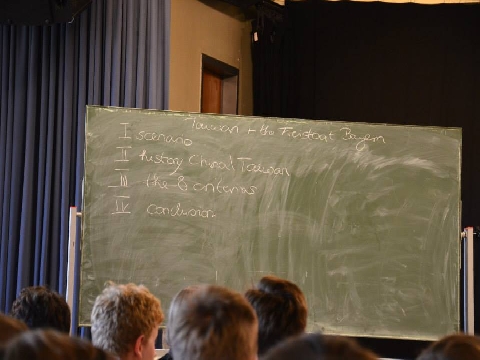 Taiwan + the Freistaat Bayern
I scenario
II history China/Taiwan
III the 3 criterias
IV conclusion